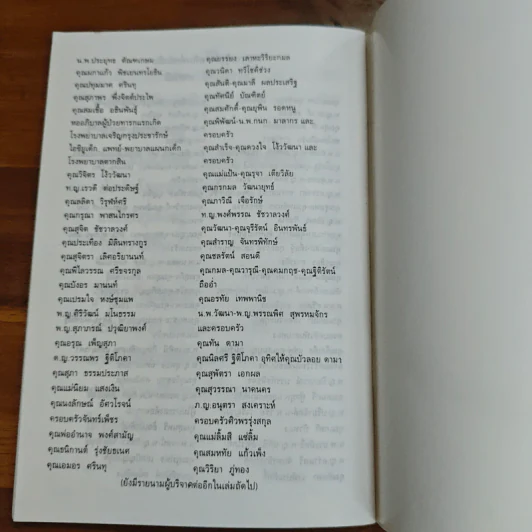 น.พ.ประยุทธ ตัณฑเกษม
คุณผกาแก้ว พิชเยนทรโยธิน
คุณปทุมมาศ ศรีนทุ
คุณสุภาพร พึ่งจิตต์ประไพ
คุณสมเชื้อ อธิมพันธุ์
หออภิบาลผู้ป่วยทารกแรกเกิด
โรงพยาบาลเจริญกรุงประชารักษ์
ไอซียูเด็ก แพทย์-พยาบาลแผนกเด็ก
โรงพยาบาลตากสิน
คุณวิจิตร โง้ววัฒนา
ท.ญ.เรวดี ต่อประดิษฐ์
คุณลลิตา วิรุฬห์ศรี
คุณกรุณา พาสนโกศร
คุณสุจิต ชัชวาลวงศ์
คุณประเทือง มิลินทรางกูร
คุณสุจิตรา เลิศอริยานนท์
คุณพิไลวรรณ ศรีขจรกุล
คุณบังอร มานนท์
คุณเปรมใจ หงษ์ชุมแพ
พ.ญ.ศิริวัฒน์ มโนธรรม
พ.ญ.สุภาภรณ์ ปรุฒิยาพงศ์
คุณอรุณ เพ็ญสุภา
ด.ญ.วรรณพร ฐิติโภคา
คุณสุภา ธรรมประภาส
คุณแม่นิยม แสงเงิน
คุณนงลักษณ์ อัศวโรจน์
ครอบครัวจันทร์เพ็ชร
คุณพ่ออำนาจ พงศ์สามัญ
คุณธนิกานต์ รุ่งชัยธเนศ
คุณเอมอร ศรีนทุ
คุณสันติ-คุณมาลี ผลประเสริฐ
คุณทัศนีย์ บัณฑิตย์
คุณสมศักดิ์-คุณยุพิน รอดหนู
คุณพิพัฒน์-น.พ.กนก มาลากร และ
ครอบครัว
คุณสำเร็จ-คุณดวงใจ โง้ววัฒนา และ
ครอบครัว
คุณแม่แป้น-คุณรุจา เตียวิลัย
คุณกรกมล วัฒนายุทธ์
คุณภาวิณี เจือรักษ์
ท.ญ.พงศ์พรรณ ชัชวาลวงศ์
คุณวัฒนา-คุณจุรีรัตน์ อินทรพันธ์
คุณสำราญ จันทรพิทักษ์
คุณชลรัตน์ สอนดี
คุณกมล-คุณวารุณี-คุณคมกฤช-คุณฐิติรัตน์
ถือถ่ำ
คุณอรทัย เทพพานิช
น.พ.วัฒนา-พ.ญ.พรรณพิศ สุพรหมจักร
และครอบครัว
คุณทัน ตามา
คุณนิลศรี ฐิติโภคา อุทิศให้คุณบัวลอย ตามา
คุณสุพัตรา เอกผล
คุณสุวรรณา นาคนคร
ภ.ญ.อนุตรา สงเคราะห์
ครอบครัวศิวพรรุ่งสกุล
คุณแม่ลิ้มสี แซ่ลิ้ม
คุณสมหทัย แก้วเพ็ง
คุณวิริยา ภู่ทอง
(ยังมีรายนามผู้บริจาคต่ออีกในเล่มถัดไป)